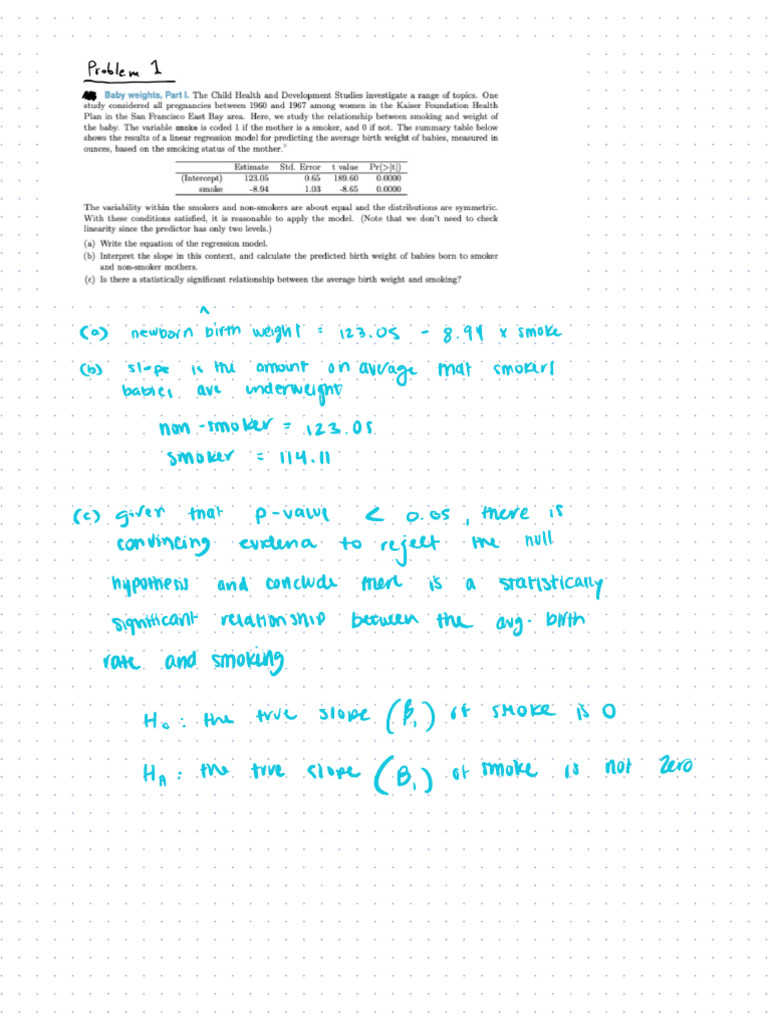 Problem 1
Baby weights, Part I. The Child Health and Development Studies investigate a range of topics. One
study considered all pregnancies between 1960 and 1967 among women in the Kaiser Foundation Health
Plan in the San Francisco East Bay area. Here, we study the relationship between smoking and weight of
the baby. The variable smoke is coded 1 if the mother is a smoker, and 0 if not. The summary table below
shows the results of a linear regression model for predicting the average birth weight of babies, measured in
ounces, based on the smoking status of the mother.
Estimate Std. Error t value Pr(>|t|)
(Intercept) 123.05 0.65 189.60 0.0000
smoke -8.94 1.03 -8.65 0.0000
The variability within the smokers and non-smokers are about equal and the distributions are symmetric.
With these conditions satisfied, it is reasonable to apply the model. (Note that we don't need to check
linearity since the predictor has only two levels.)
(a) Write the equation of the regression model.
(b) Interpret the slope in this context, and calculate the predicted birth weight of babies born to smoker
and non-smoker mothers.
(c) Is there a statistically significant relationship between the average birth weight and smoking?
^
(a) newborn birth weight = 123.05 - 8.94 x smoke
(b) slope is the amount on average that smokers
babies are underweight
non-smoker = 123.05
smoker = 114.11
(c) given that p-value < 0.05, there is
convincing evidence to reject the null
hypothesis and conclude there is a statistically
significant relationship between the avg. birth
rate and smoking
H₀: the true slope (β₁) of smoke is 0
Hₐ: the true slope (β₁) of smoke is not zero